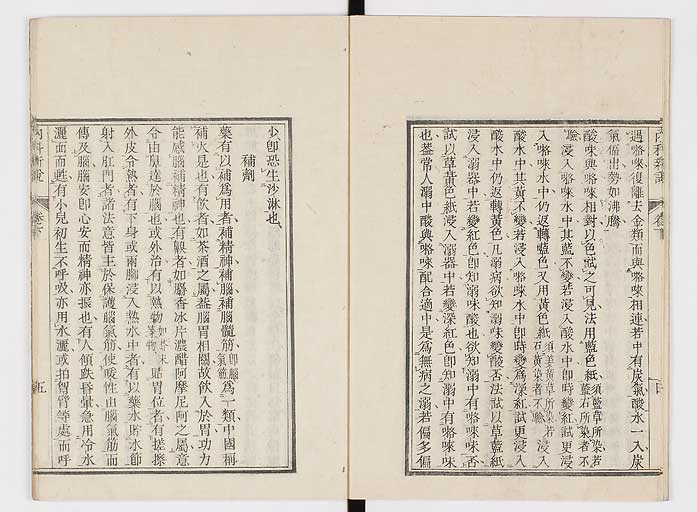 遇咯唻復離去金類而與咯唻相連若中有炭氣酸水一入炭
氣偪出勢如沸騰
酸味與咯唻相對以色試之可見法用藍色紙須藍草所染若藍石所染者不
驗浸入咯唻水中其藍不變若浸入酸水中即時變紅試更浸
入咯唻水中仍返轉藍色又用黃色紙須姜黃草所染若石黃染者不驗浸入
酸水中其黃不變若浸入咯唻水中即時變為深紅試更浸入
酸水中仍返轉黃色凡溺病欲知溺味變酸否法試以草藍紙
浸入溺器中若變紅色即知溺味酸也欲知溺中有咯唻味否
試以草黃色紙浸入溺器中若變深紅色即知溺中有咯唻味
也蓋常人溺中酸與咯唻配合適中是為無病之溺若偏多偏
少即恐生沙淋也
補劑
藥有以補為用者補精神補腦補腦髓筋即腦氣筋為一類中國稱
補火是也有飲者如茶酒之屬蓋腦胃相關故飲入於胃功力
能感腦補精神也有齅者如麝香冰片濃醋阿摩尼阿之屬意
令由鼻達於腦也或外治有以熱物如芥末藥物貼胃位者有搓擦
外皮令熱者有下身或兩腳浸入熱水中者有以藥水貯水節
射入肛門者諸法意皆主於保護腦氣筋使喚性由腦氣筋而
傳及腦腦安即心安而精神亦振也有人傾跌昏暈急用冷水
灑面而甦有小兒初生不呼吸亦用水灑或拍智胷等處而呼
內科新說
卷下
五